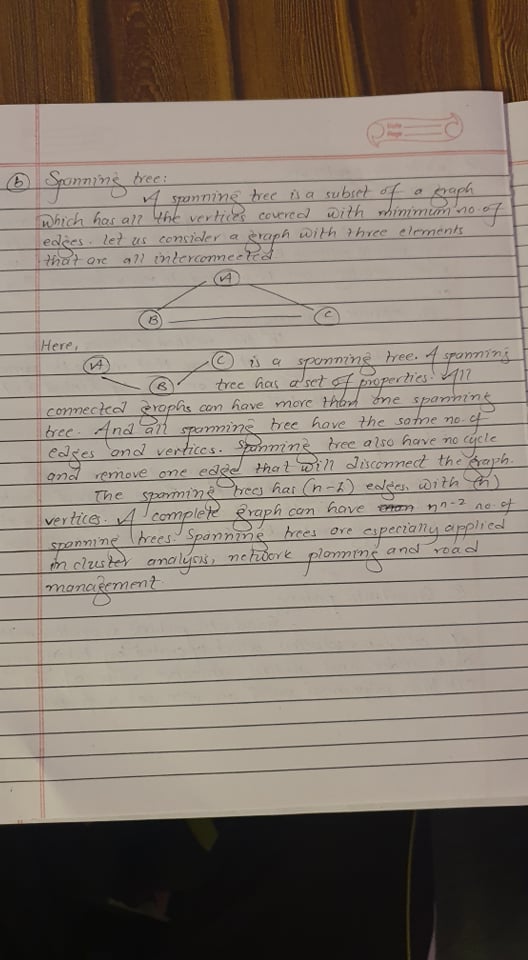 Date
Page
b Spanning tree:
A spanning tree is a subset of a graph
which has all the vertices covered with minimum no. of
edges. let us consider a graph with three elements
that are all interconnected
A
B C
Here,
A C is a spanning tree. A spanning
B tree has a set of properties. All
connected graphs can have more than one spanning
tree. And all spanning tree have the same no. of
edges and vertices. Spanning tree also have no cycle
and remove one edge that will disconnect the graph.
The spanning trees has (n-1) edges, with (n)
vertices. A complete graph can have n^n-2 no. of
spanning trees. Spanning trees are especially applied
in cluster analysis, network planning and road
management.